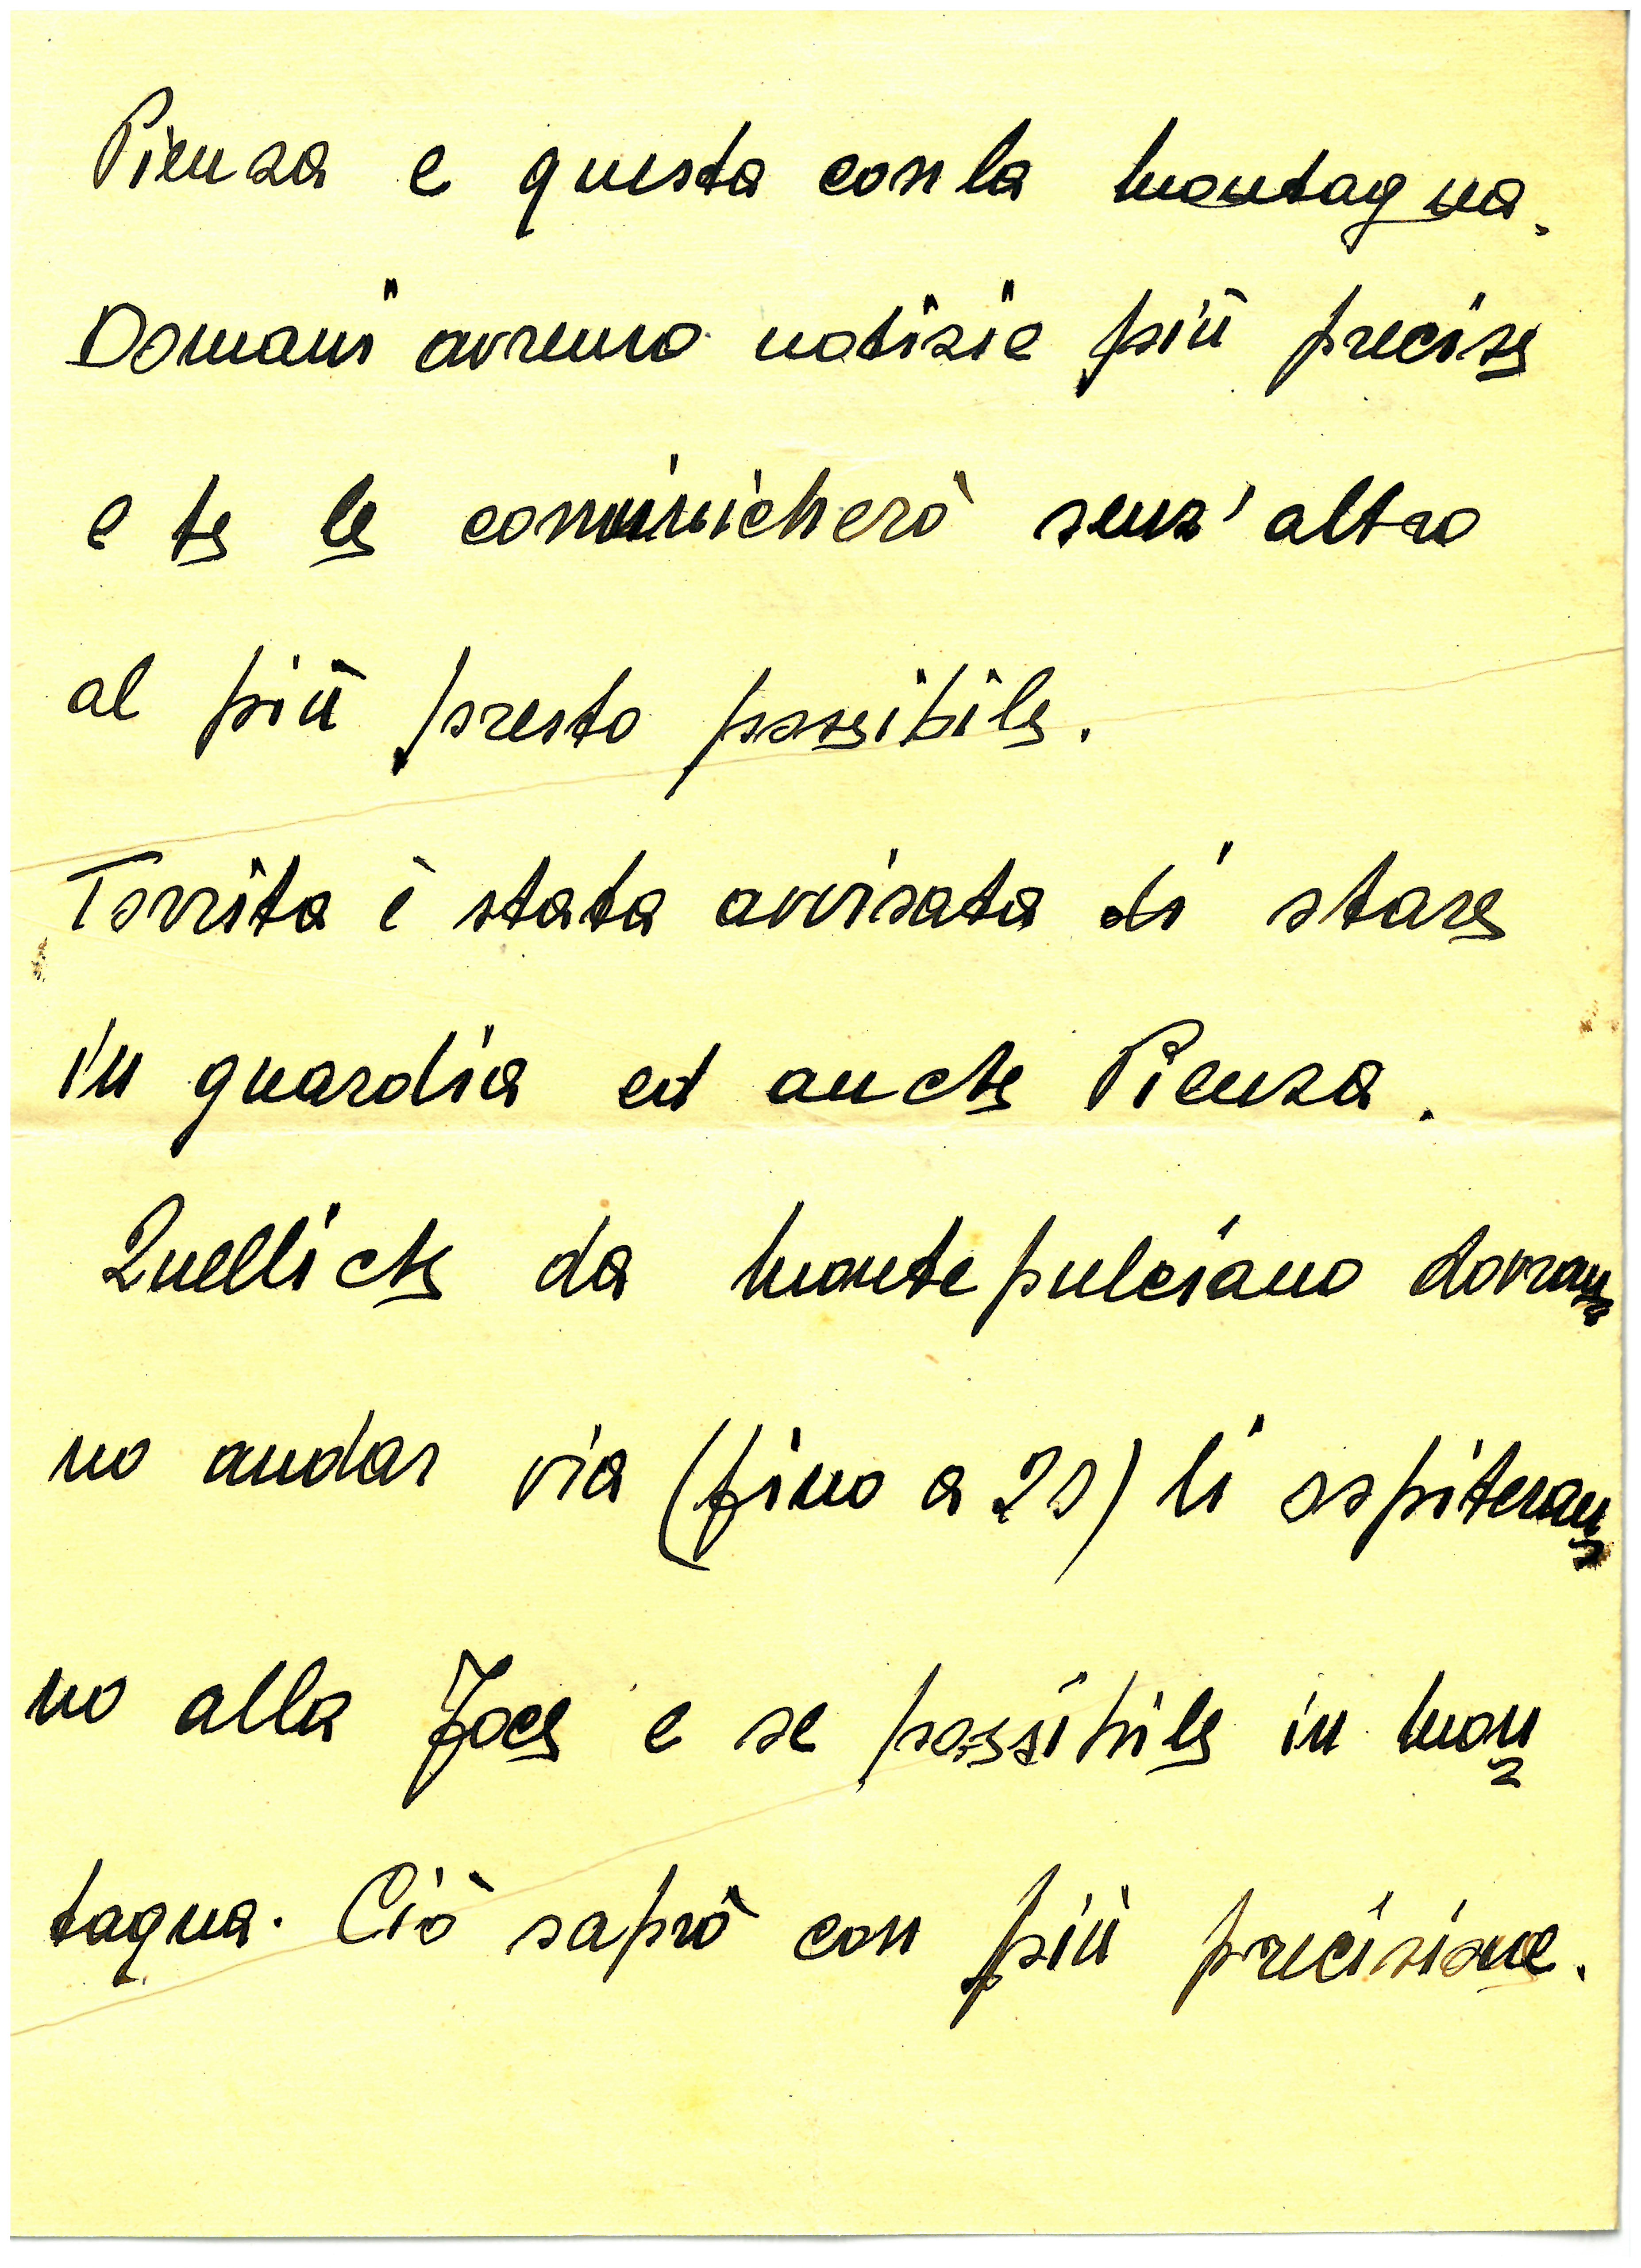 Pienza e questa con la montagna.
Domani avremo notizie più precise
e te le comunicherò senz'altro
al più presto possibile.
Torrita è stata avvisata di stare
in guardia ed anche Pienza.
Quelli che da Montepulciano dovran
no andar via (fino a 20) li ospiteran
no alla Foce e se possibile in mon
tagna. Ciò saprò con più precisione.